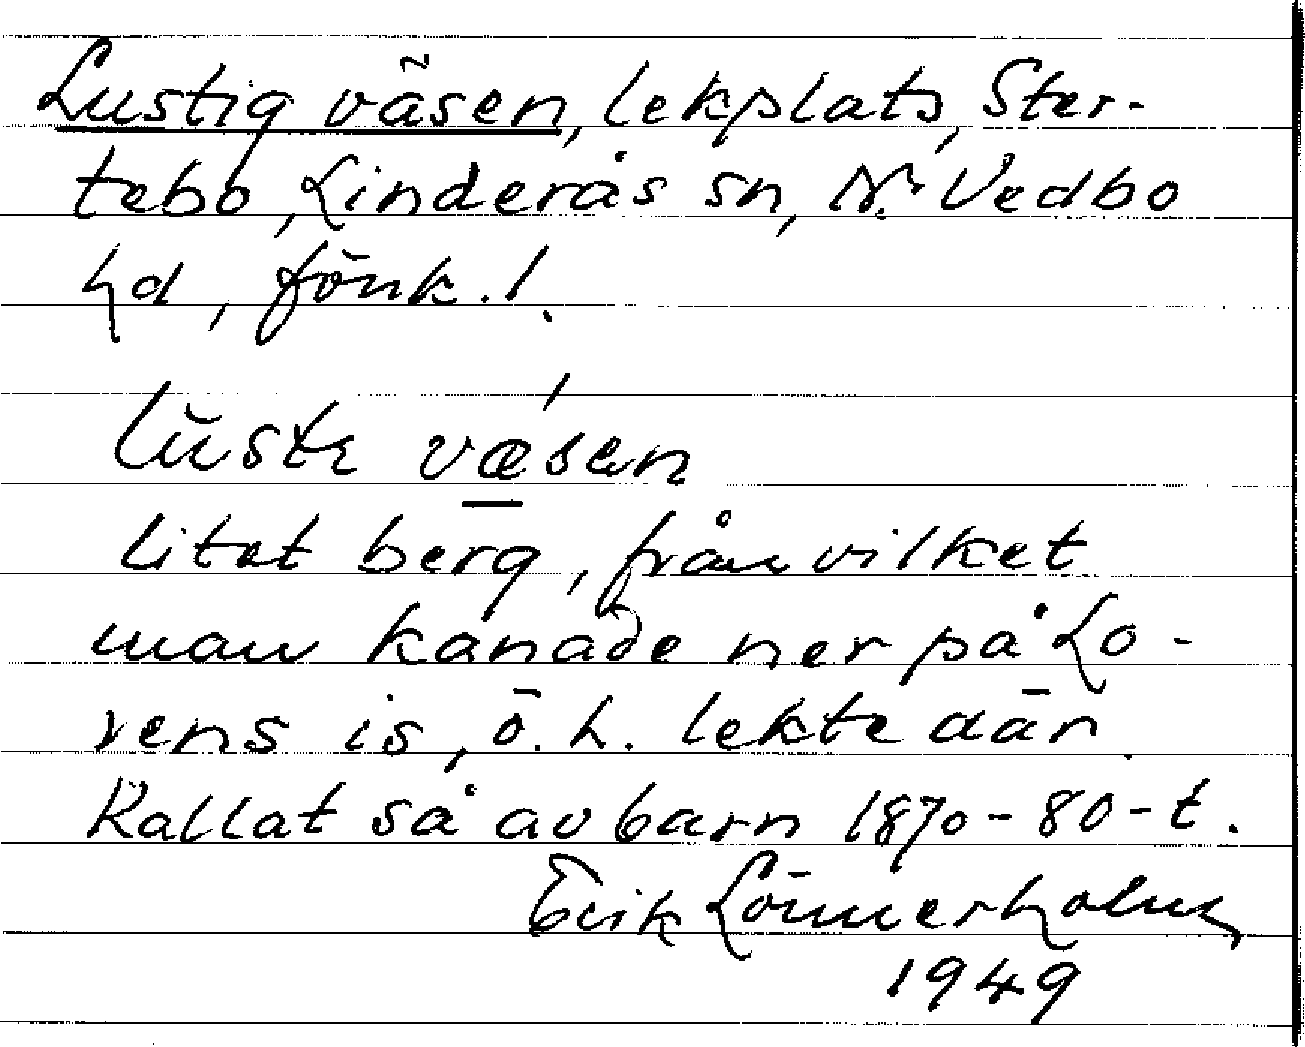 Lustig väsen, lekplats, Ster-
tebo, Linderås sn, N. Vedbo
hd, Jönk. l.
lŭste væsen
litet berg, från vilket
man kanade ner på Lo-
rens is, o. h. lekte där.
Kallat så av barn 1870-80-t.
Erik Lönnerholm
1949